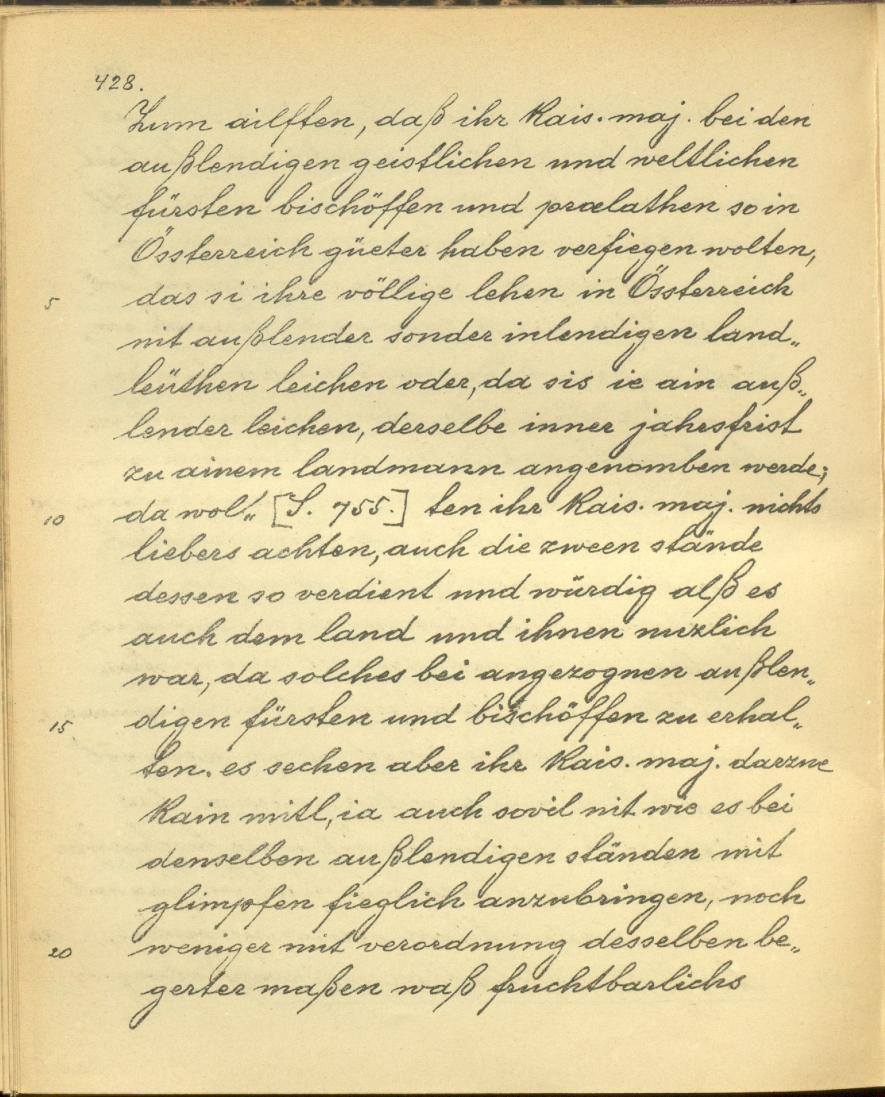 428.
Zum ailfften, daß ihr Kais. maj. bei den
außlendigen geistlichen und weltlichen
fürsten bischöffen und prælathen so in
Össterreich güeter haben verfiegen wolten,
5 das si ihre völlige lehen in Össterreich
nit außlender sonder inlendigen land„
leüthen leichen oder, da sis ie ain auß„
lender leichen, derselbe inner jahrsfrist
zu ainem landmann angenomben werde;
10 da wol„ [S. 755.] ten ihr Kais. maj. nichts
liebers achten, auch die zween stände
dessen so verdient und würdig alß es
auch dem land und ihnen nuzlich
war, da solches bei angezognen außlen„
15. digen fürsten und bischöffen zu erhal„
ten. es sechen aber ihr Kais. maj. darzue
Kain mitl, ia auch sovil nit wie es bei
denselben außlendigen ständen mit
glimpfen fieglich anzubringen, noch
20 weniger mit verordnung desselben be„
gerter maßen waß fruchtbarlichs